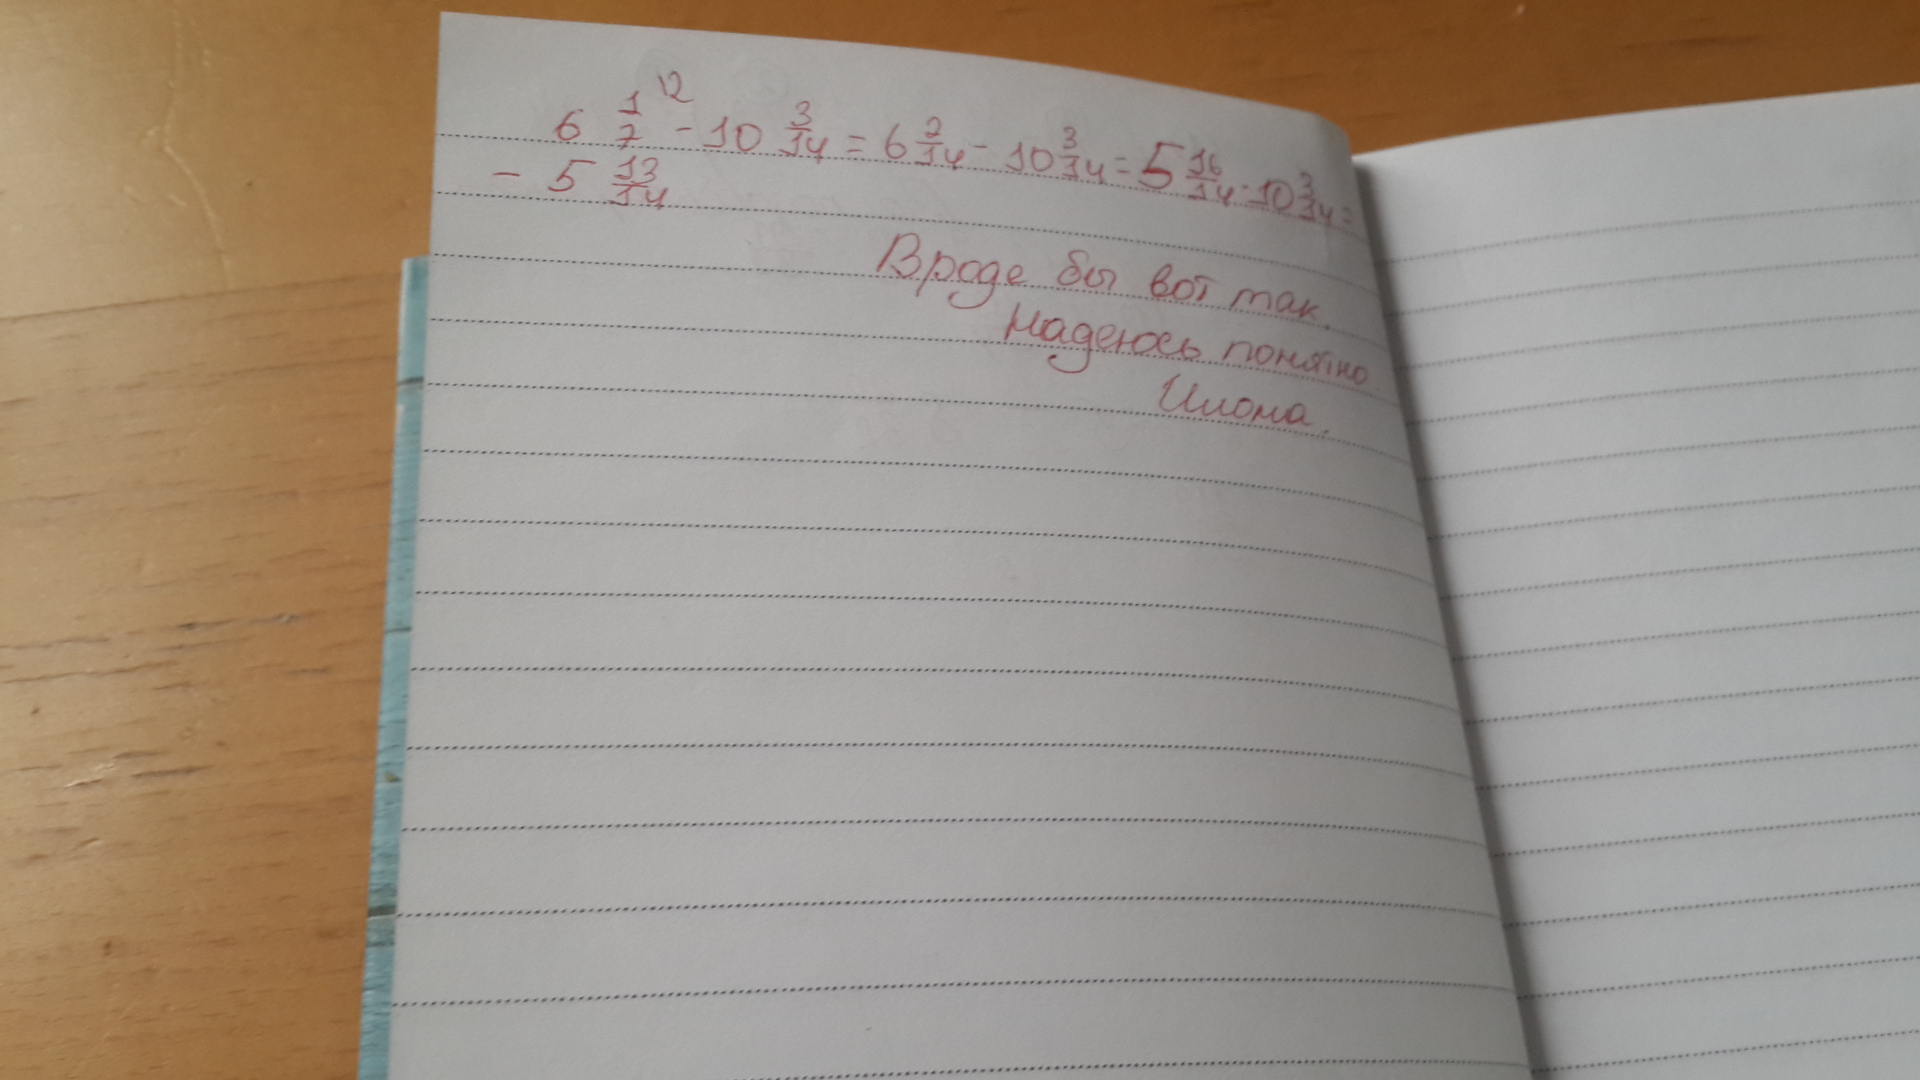 6 1/7 |2 - 10 3/14 = 6 2/14 - 10 3/14 = 5 16/14 - 10 3/14 =
- 5 13/14
Вроде бы вот так.
Надеюсь понятно.
Илона.